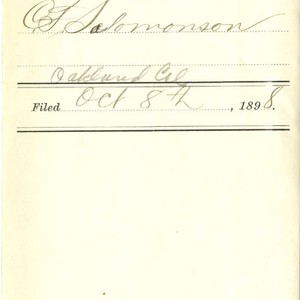 C. F. Salomonson
Oakland Cal
Filed Oct 8th, 1898.